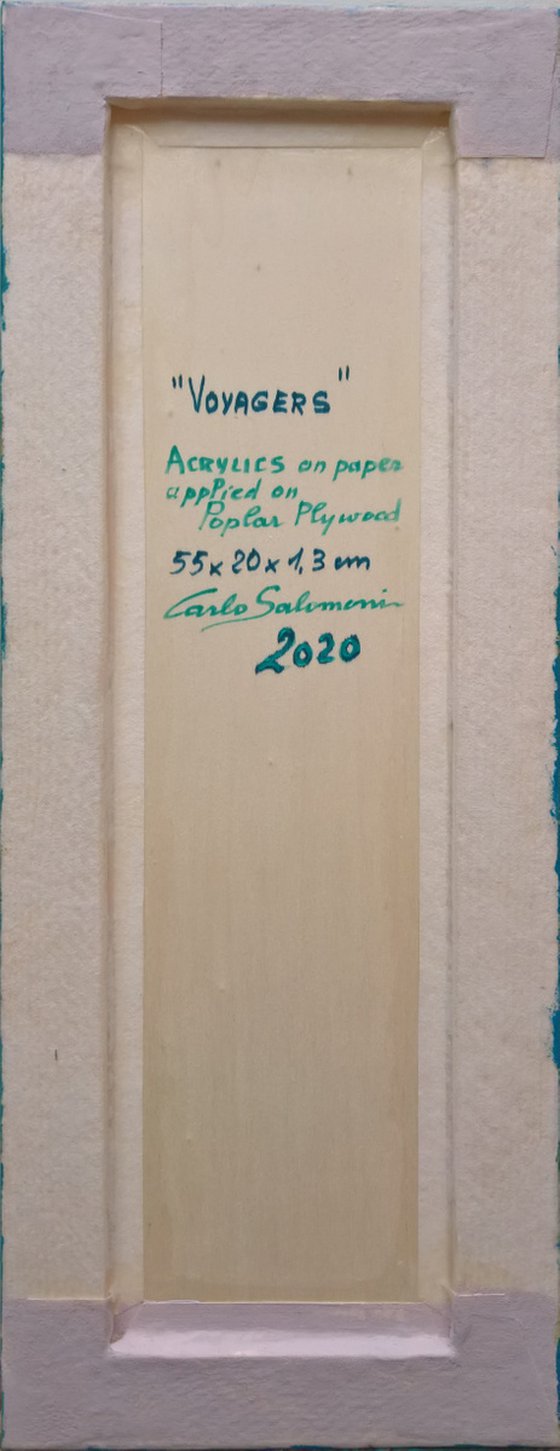 "VOYAGERS"
ACRYLICS on paper
applied on
Poplar Plywood
55x20x1,3 cm
Carlo Salomoni
2020